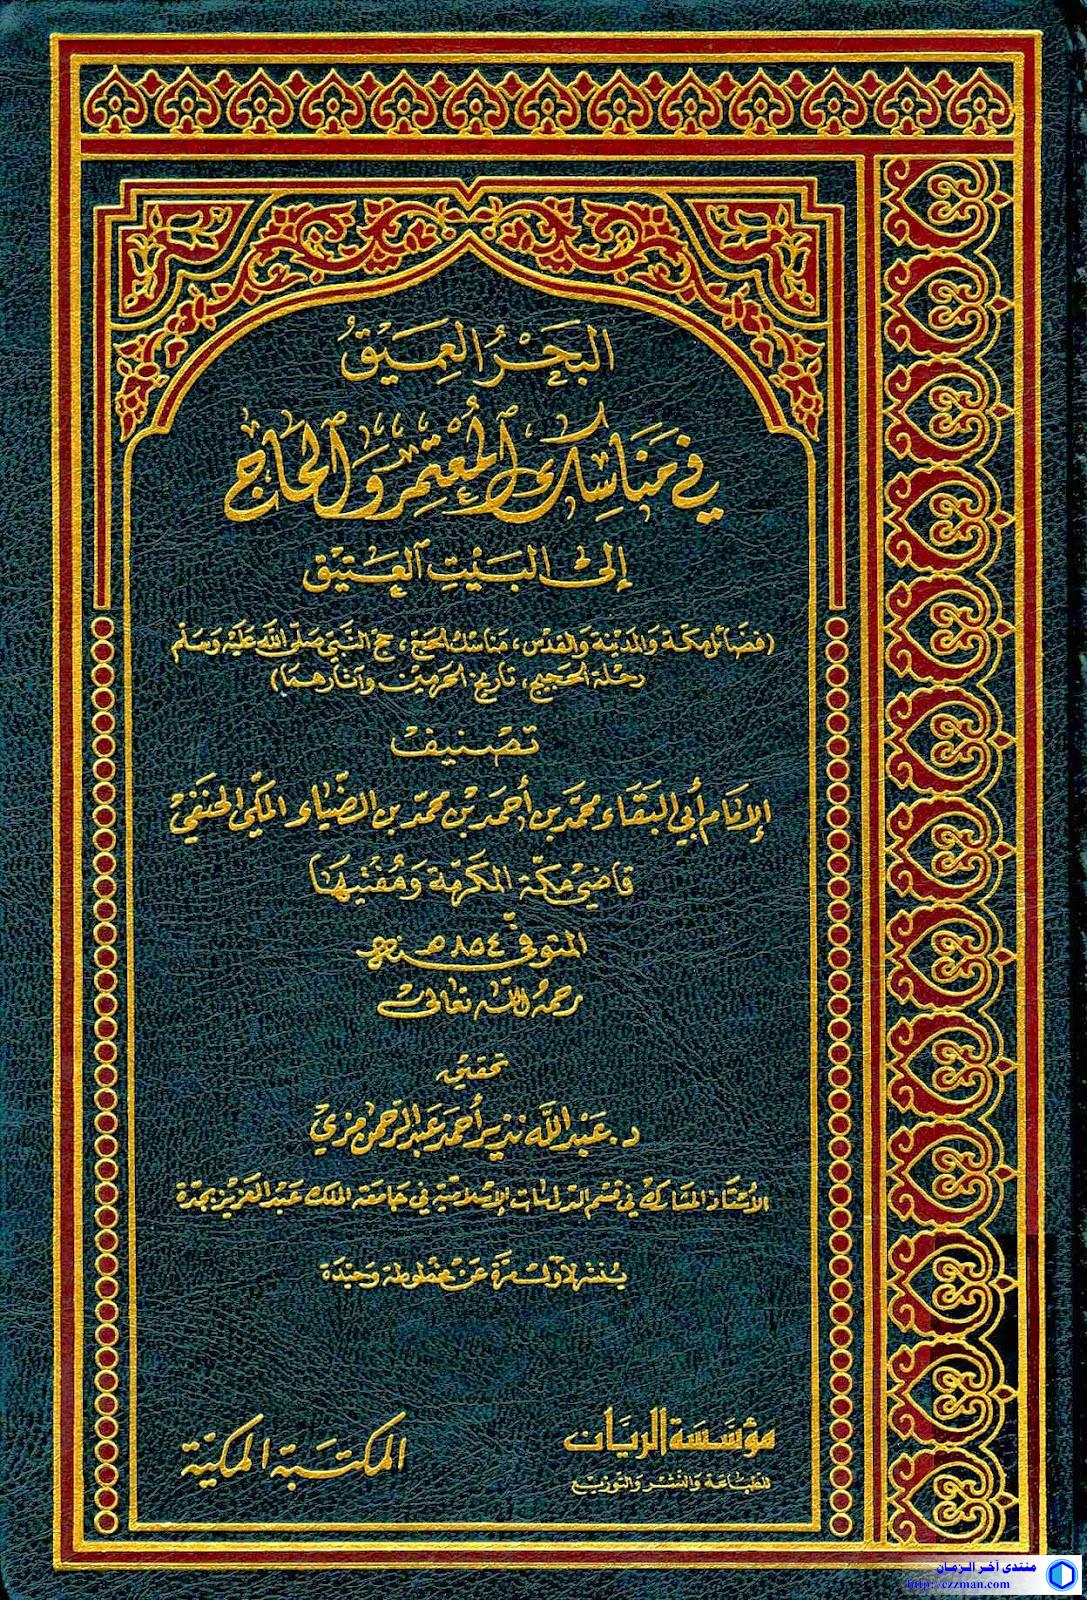 البَحْرُ العَمِيْقُ
فِي مَنَاسِكِ الْمُعْتَمِرِ وَالحَاجِّ
إِلَى البَيْتِ العَتِيْقِ
(فضَائل مكّة والمَدينة والقدس، مناسك الحج، حج النّبيّ صَلّى اللّه عَلَيْه وَسَلّم
رحْلة الحَجيج، تاريخ الحرمين وآثارهما)
تصنيف
الإمَام أبي البَقَاء محمّد بن أحمَد بْن محمّد بن الضّياء المكّي الحنفي
قاضي مكّة المكرّمة وَمُفْتيها
المتوفّى ٨٥٤ هـ
رحمهُ اللّه تعالى
تحقيق
د. عَبْد اللّه نذير أحمَد عَبْد الرّحمن مزي
الأستاذ المشارك في قسْم الدّراسات الإسْلاميّة في جَامعَة الملك عَبْد العَزيز بجدّة
يُنشر لأوّل مَرّة عَنْ مخطوطة وَحيْدة
مؤسّسَة الريّان
للطّباعَة والنّشر والتّوزيع
المكتبَة المكيّة
منتدى آخر الزمان
http://ezzman.com